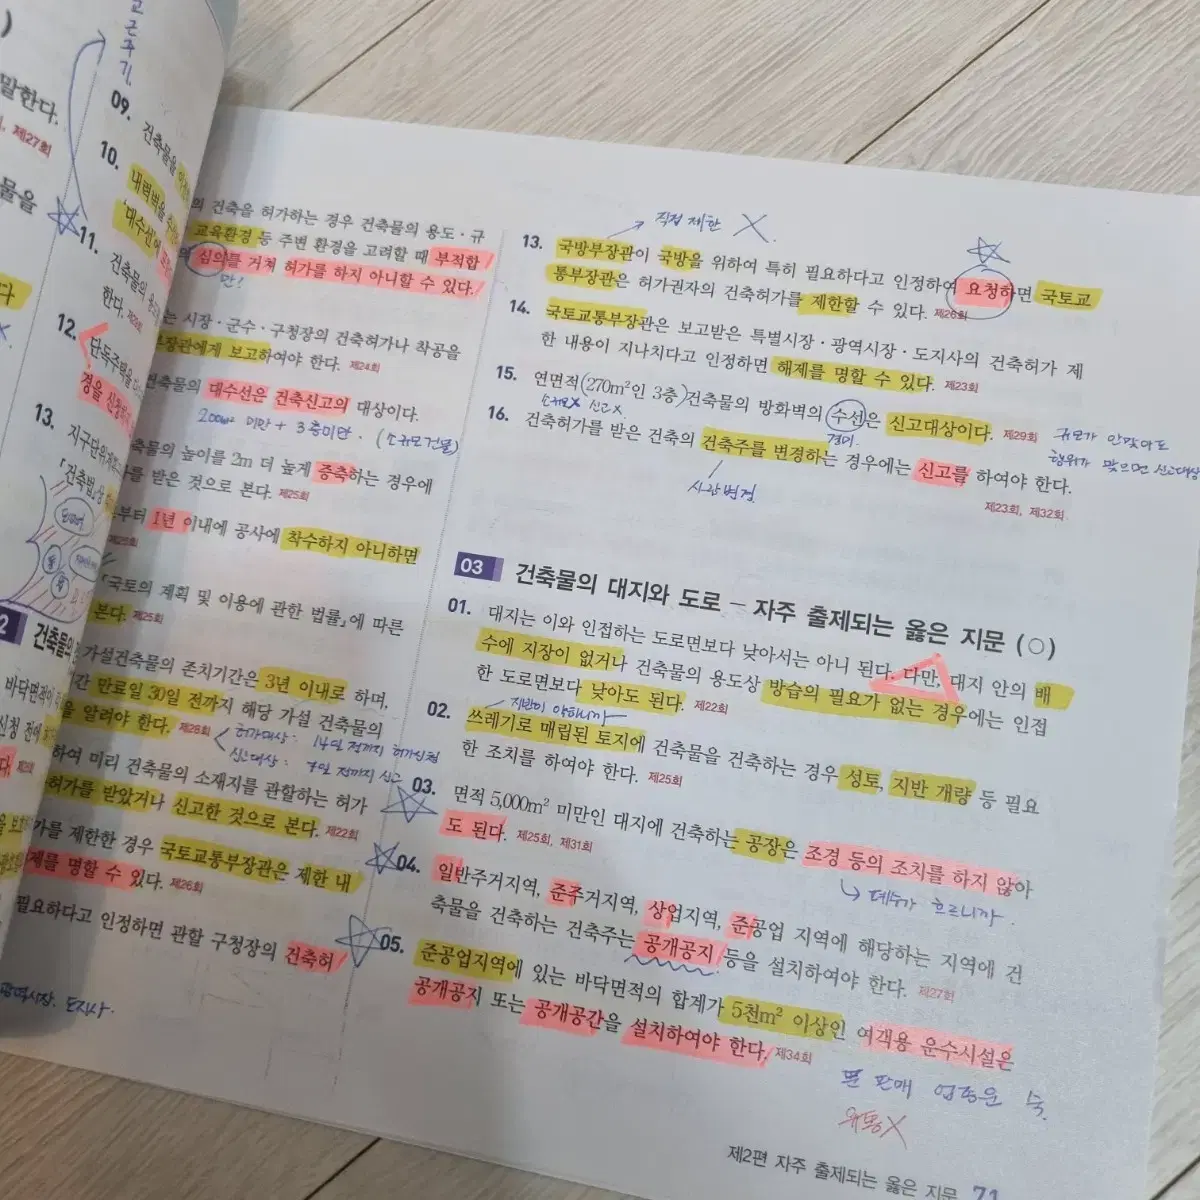 말한다.
제27회
물을
09. 건축물을
10. 내력벽을
'대수선'에
11. 건축물의
한다.
12. 단독주택을
경을 신청
13. 지구단위계획
「건축법」상
의 건축을 허가하는 경우 건축물의 용도·규
교육환경 등 주변 환경을 고려할 때 부적합
심의를 거쳐 허가를 하지 아니할 수 있다.
만!
는 시장·군수·구청장의 건축허가나 착공을
부장관에게 보고하여야 한다. 제24회
건축물의 대수선은 건축신고의 대상이다.
200m² 미만 + 3층미만. (소규모건물)
축물의 높이를 2m 더 높게 증축하는 경우에
를 받은 것으로 본다. 제25회
부터 1년 이내에 공사에 착수하지 아니하면
제25회
「국토의 계획 및 이용에 관한 법률」에 따른
본다. 제25회
가설건축물의 존치기간은 3년 이내로 하며,
간 만료일 30일 전까지 해당 가설 건축물의
을 알려야 한다. 제26회
허가대상 : 14일 전까지 허가신청
신고대상 : 7일 전까지 신고
바닥면적
신청 전에
하여 미리 건축물의 소재지를 관할하는 허가
허가를 받았거나 신고한 것으로 본다. 제22회
가를 제한한 경우 국토교통부장관은 제한 내
제를 명할 수 있다. 제26회
필요하다고 인정하면 관할 구청장의 건축허
광역시장. 도지사.
직접 제한 X
13. 국방부장관이 국방을 위하여 특히 필요하다고 인정하여 요청하면 국토교
통부장관은 허가권자의 건축허가를 제한할 수 있다. 제26회
14. 국토교통부장관은 보고받은 특별시장·광역시장·도지사의 건축허가 제
한 내용이 지나치다고 인정하면 해제를 명할 수 있다. 제23회
15. 연면적(270m²인 3층)건축물의 방화벽의 수선은 신고대상이다. 제29회
소규모X 신고X
규모가 안맞아도
행위가 맞으면 신고대상
16. 건축허가를 받은 건축의 건축주를 변경하는 경우에는 신고를 하여야 한다.
제23회, 제32회
사람변경
03 건축물의 대지와 도로 – 자주 출제되는 옳은 지문 (○)
01. 대지는 이와 인접하는 도로면보다 낮아서는 아니 된다. 다만, 대지 안의 배
수에 지장이 없거나 건축물의 용도상 방습의 필요가 없는 경우에는 인접
한 도로면보다 낮아도 된다. 제22회
지반이 약하니까
02. 쓰레기로 매립된 토지에 건축물을 건축하는 경우 성토, 지반 개량 등 필요
한 조치를 하여야 한다. 제25회
03. 면적 5,000m² 미만인 대지에 건축하는 공장은 조경 등의 조치를 하지 않아
도 된다. 제25회, 제31회
폐수가 흐르니까
04. 일반주거지역, 준주거지역, 상업지역, 준공업 지역에 해당하는 지역에 건
축물을 건축하는 건축주는 공개공지 등을 설치하여야 한다. 제27회
05. 준공업지역에 있는 바닥면적의 합계가 5천m² 이상인 여객용 운수시설은
공개공지 또는 공개공간을 설치하여야 한다. 제34회
문 판매 업 종 운 숙.
제2편 자주 출제되는 옳은 지문 71